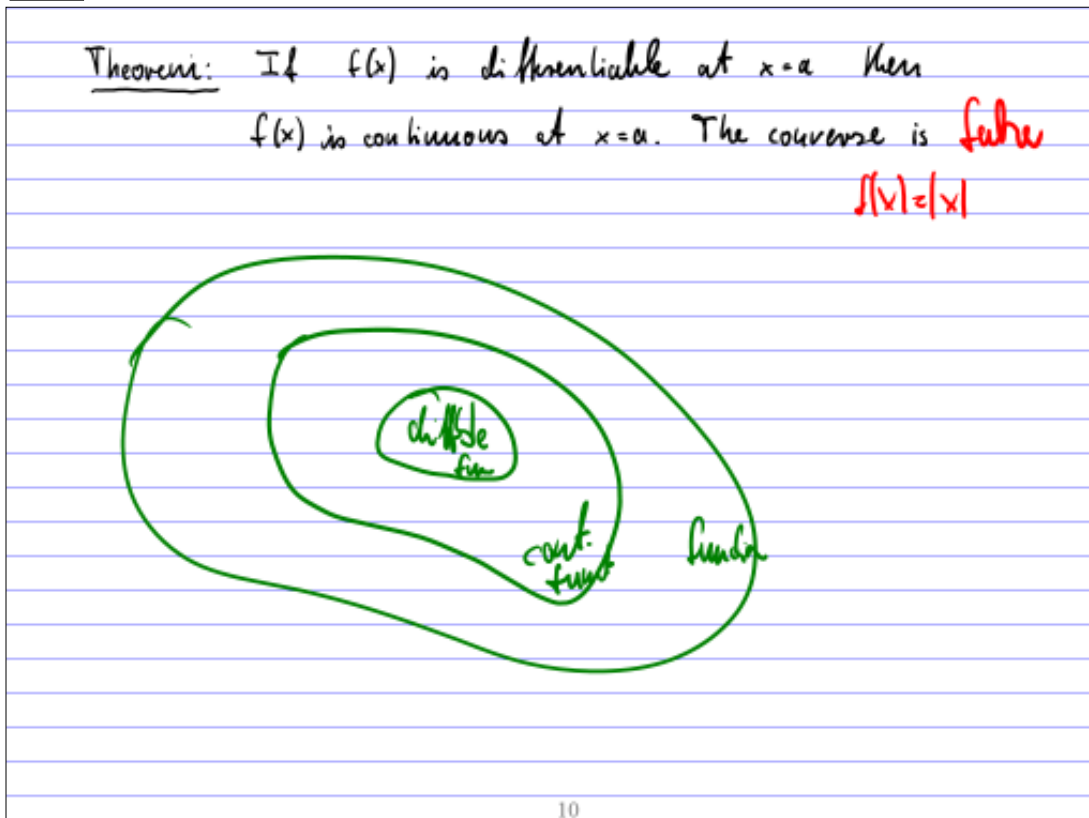 Theorem: If f(x) is differentiable at x=a then
f(x) is continuous at x=a. The converse is false
f(x)=|x|
diffble
fun
cont.
funct
function
10